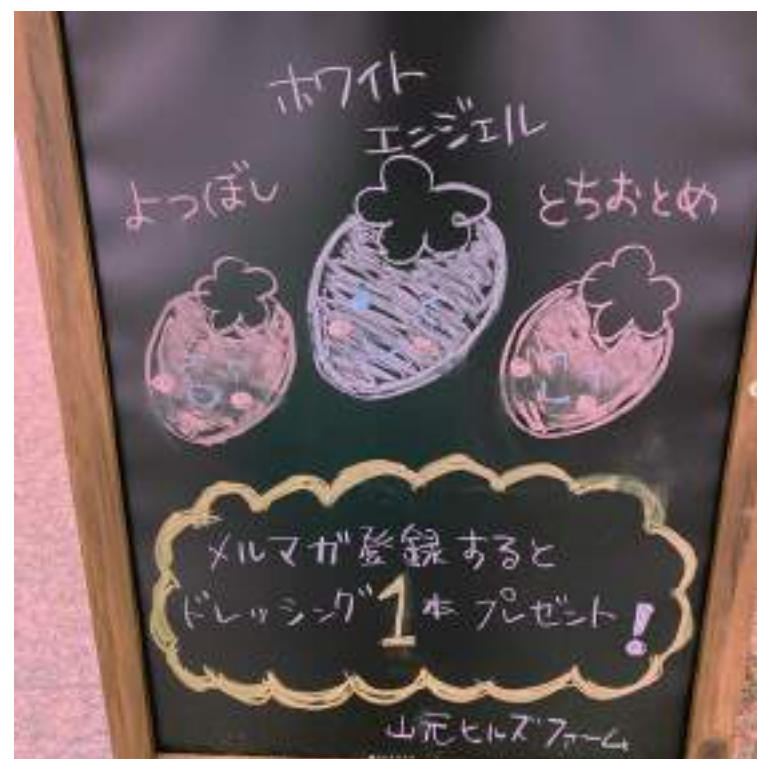 ホワイト
エンジェル
よつぼし
とちおとめ
メルマガ登録すると
ドレッシング1本プレゼント!
山元ヒルズファーム